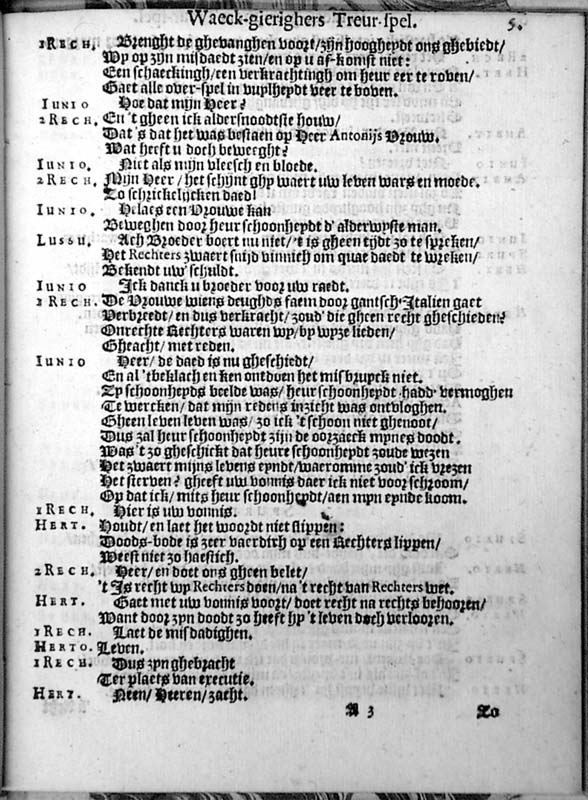 Waeck-gierighers Treur-spel. 5.
1 RECH. Brenght de ghevanghen voort/zijn hoogheydt ons ghebiedt/
Wy op zijn misdaedt zien/en op u af-komst niet:
Een schaeckingh/een verkrachtingh om heur eer te roven/
Gaet alle over-spel in vuylheydt veer te boven.
IUNIO Hoe dat mijn Heer?
2 RECH. En 't gheen ick aldersnoodtste houw/
Dat 's dat het was bestaen op Heer Antonijs Vrouw.
Wat heeft u doch beweeght?
IUNIO. Niet als mijn vleesch en bloede.
2 RECH. Mijn Heer/het schijnt ghy waert uw leven wars en moede.
Zo schrickelijcken daed!
IUNIO. Helaes een Vrouwe kan
Beweghen door heur schoonheydt d' alderwyste man.
LUSSU. Ach Broeder boert nu niet/'t is gheen tijdt zo te spreken/
Het Rechters zwaert snid vinnich om quat daedt te wreken/
Bekendt uw' schuldt.
IUNIO Ick danck u broeder voor uw raedt.
2 RECH. De Vrouwe wiens deughds faem door gantsch-Italien gaet
Verbreedt/en dus verkracht/zoud' die gheen recht gheschieden?
Onrechte Rechters waren wy/by wyze lieden/
Gheacht/met reden.
IUNIO Heer/de daed is nu gheschiedt/
En al 'tbeklach en ken ontdoen het misbruyck niet.
Zy schoonheyds beelde was/heur schoonheydt hadd' vermoghen
Te wercken/dat mijn redens inzicht was ontvloghen.
Gheen leven leven was/zo ick 't schoon niet ghenoot/
Dus zal heur schoonheydt zijn de oorzaeck mynes doodt.
Was 't zo gheschickt dat heure schoonheydt zoude wezen
Het zwaert mijns levens eyndt/waeromme zoud' ick vrezen
Het sterven? gheeft uw vonnis daer ick niet voor schroom/
Op dat ick/mits heur schoonheydt/aen mijn eynde koom.
1 RECH. Hier is uw vonnis.
HERT. Houdt/en laet het woordt niet slippen:
Doods-bode is zeer vaerdich op een Rechters lippen/
Weest niet zo haestich.
2 RECH. Heer/en doet ons gheen belet/
't Is recht wy Rechters doen/na 't recht van Rechters wet.
HERT. Gaet met uw vonnis voort/doet recht na rechts behooren/
Want door zyn doodt zo heeft hy 't leven doch verlooren.
1 RECH. Laet de misdadighen.
HERTO. Leven.
1 RECH. Dus zyn ghebracht
Ter plaets van executie.
HERT. Neen/Heeren/zacht.
A 3 Zo